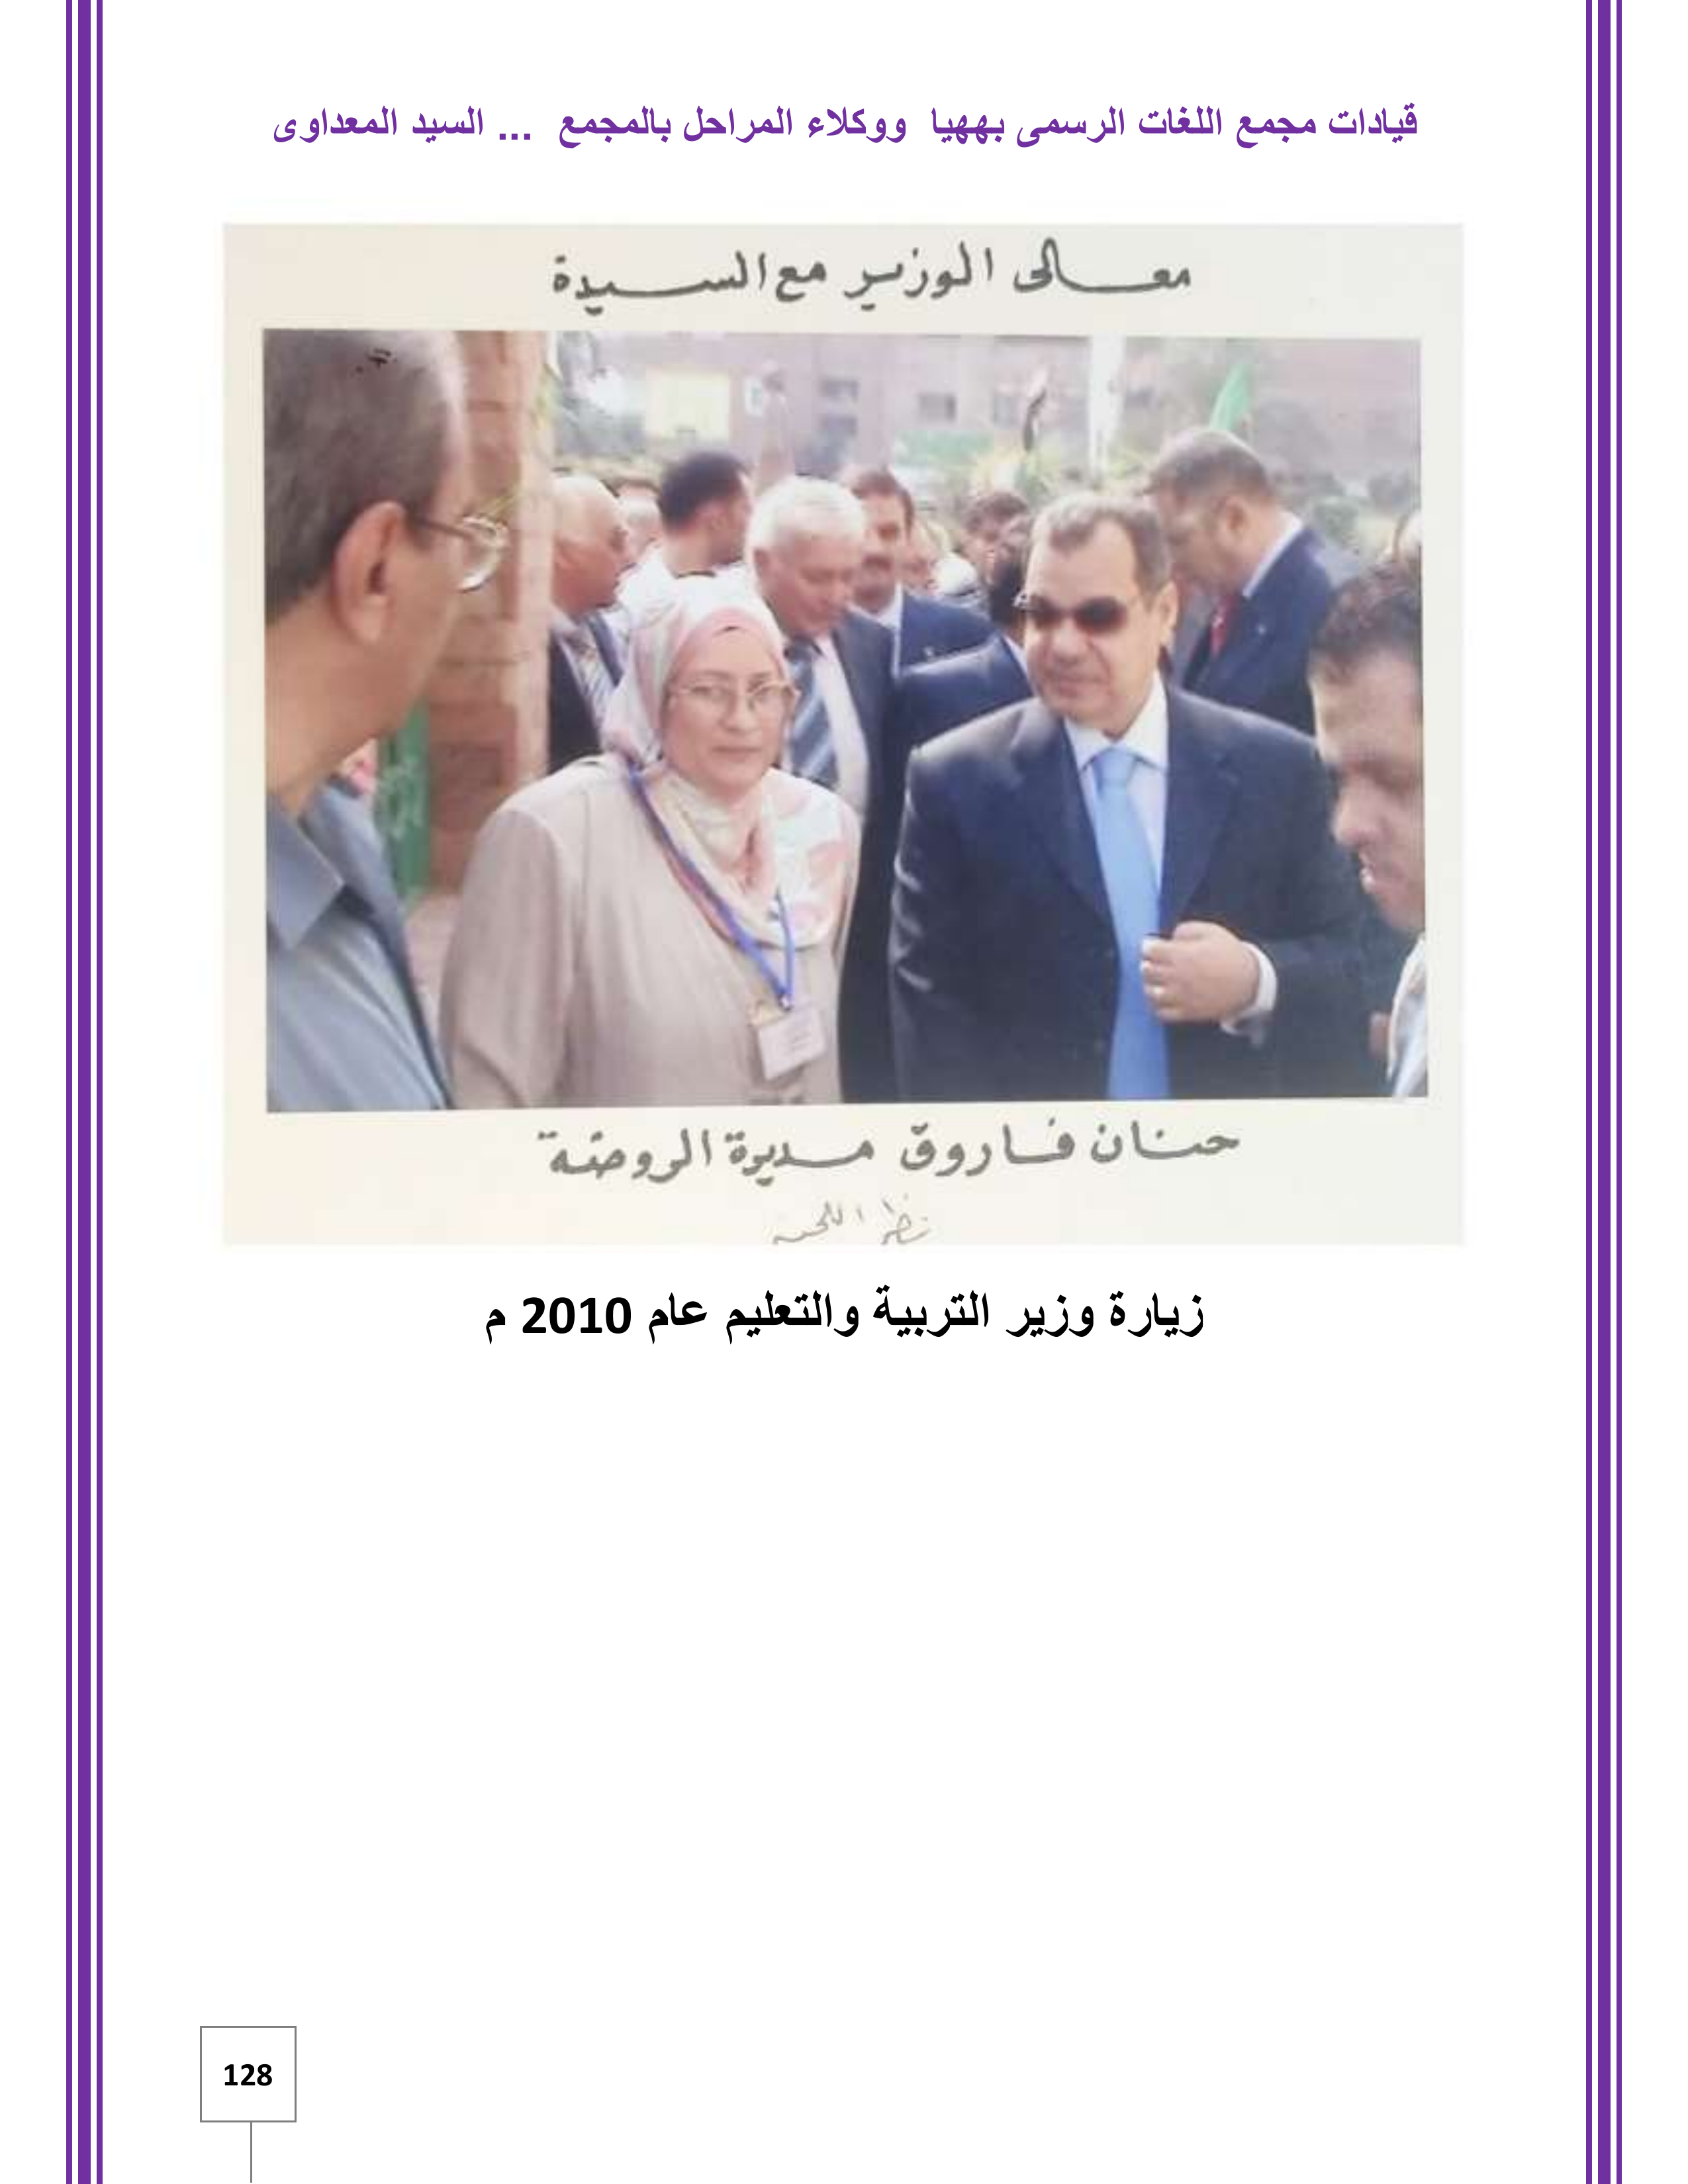 قيادات مجمع اللغات الرسمى بههيا ووكلاء المراحل بالمجمع ... السيد المعداوى
معالى الوزير مع السيدة
حنان فاروق مديرة الروضة
زيارة وزير التربية والتعليم عام 2010 م
128